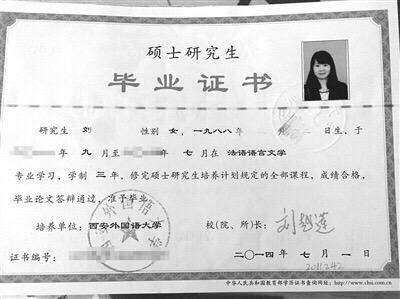 硕士研究生
毕业证书
研究生 刘 性别 女，一九八八年 月 二日生，于
年 九 月至 年 七 月在 法语语言文学
专业学习，学制 三 年，修完硕士研究生培养计划规定的全部课程，成绩合格，
毕业论文答辩通过，准予毕业。
培养单位：西安外国语大学 校（院、所）长：刘越莲
证书编号： 二〇一四年 七 月 一 日
中华人民共和国教育部学历证书查询网址：http://www.chsi.com.cn